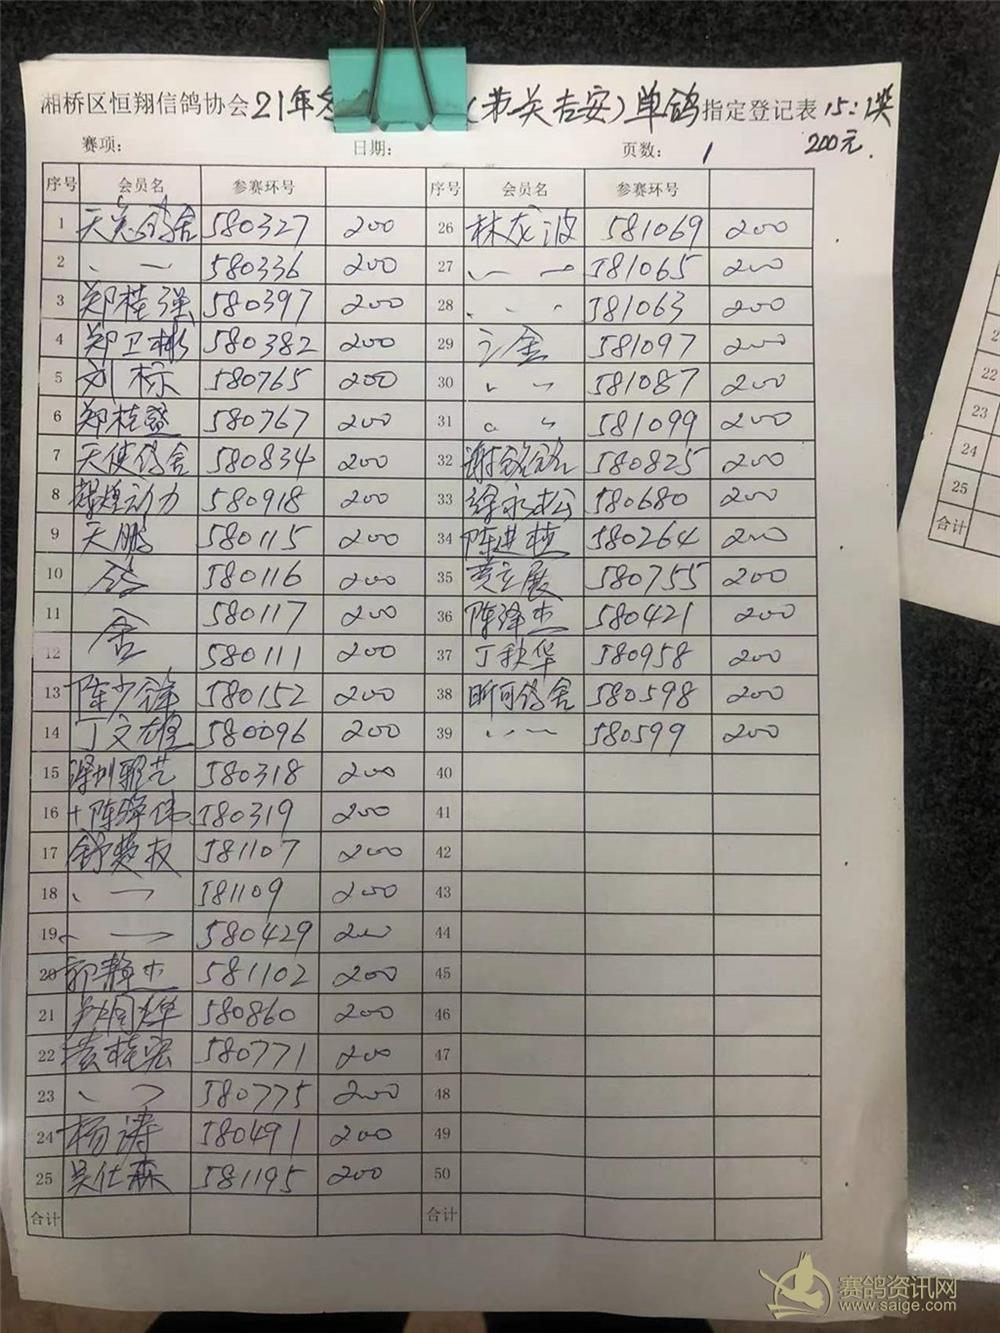 湘桥区恒翔信鸽协会21年 (第一关吉安)单鸽指定登记表15:1奖
赛项: 日期: 页数: 1 200元.
序号 会员名 参赛环号 序号 会员名 参赛环号
1 580327 200 26 林龙波 581069 200
2 、 一 580336 200 27 581065 200
3 郑桂强 580397 200 28 581063 200
4 郑卫彬 580382 200 29 581097 200
5 刘标 580765 200 30 581087 200
6 郑桂盛 580767 200 31 581099 200
7 天使鸽舍 580834 200 32 谢铭铭 580825 200
8 辉煌动力 580918 200 33 徐永松 580680 200
9 天鹏 580115 200 34 陈进植 580264 200
10 鸽 580116 200 35 黄立展 580755 200
11 舍 580117 200 36 陈泽杰 580421 200
12 580111 200 37 丁秋华 580958 200
13 陈少锋 580152 200 38 昕可鸽舍 580598 200
14 丁文雄 580096 200 39 580599 200
15 深圳雅艺 580318 200 40
16 +陈泽伟 580319 200 41
17 581107 200 42
18 581109 200 43
19 580429 200 44
20 郭静杰 581102 200 45
21 580860 200 46
22 黄桂宏 580771 200 47
23 580775 200 48
24 杨涛 580491 200 49
25 吴仕森 581195 200 50
合计 合计
22
23
24
25
合计
赛鸽资讯网
www.saige.com